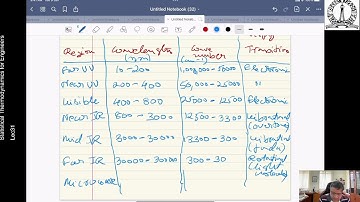 Untitled Notebook (32)
Statistical Thermodynamics for Engineers
Lec31
Region Wavelength (nm) Wave number (cm-1) Transition
Far UV 10-200 1,000,000-50000 Electronic
Near UV 200-400 50,000-25000 "
Visible 400-800 25000-12500 Electronic
Near IR 800-3000 12500-3300 Vibrational (overtones)
Mid IR 3000-30000 13300-300 Vibrational (funda)
Far IR 30000-30000 300-30 Rotational (light
Microwave